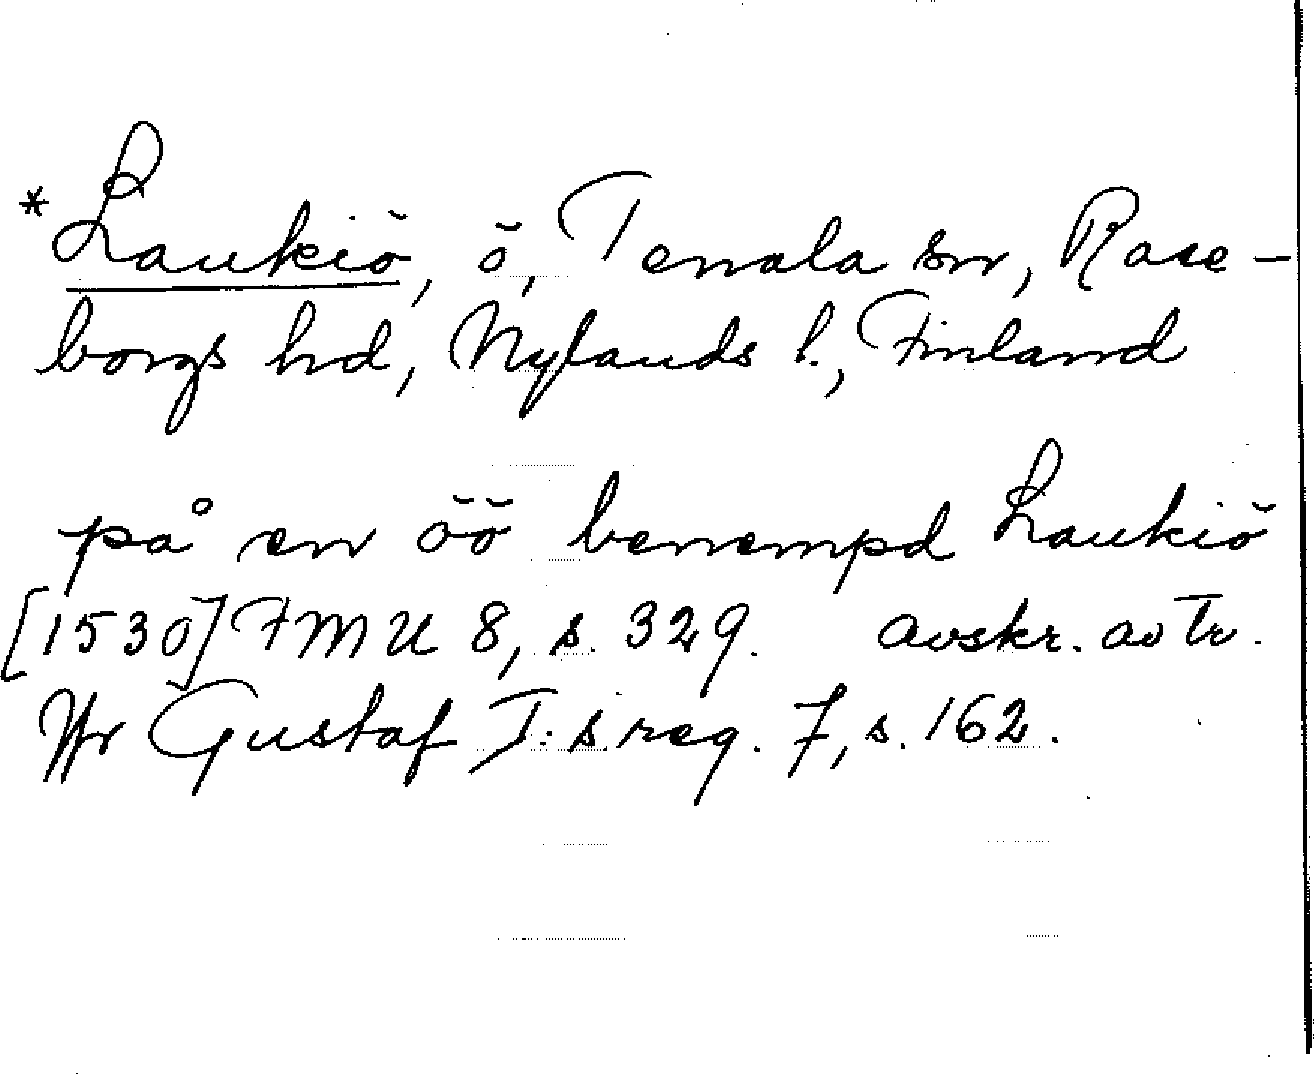 *Laukiö, ö, Tenala sn, Rase-
borgs hd, Nylands l., Finland
på en öö benempd Laukiö
[1530] FMU 8, s. 329. avskr. av tr.
ur Gustaf I:s reg. 7, s. 162.